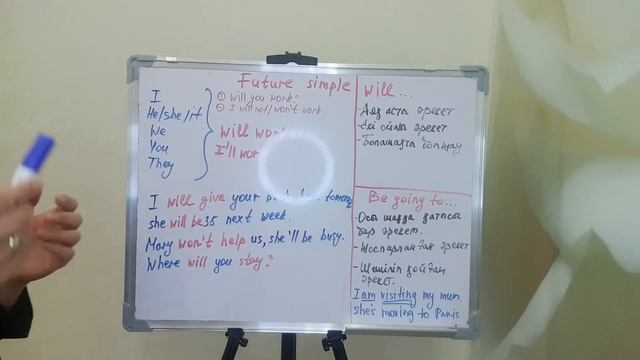 Future simple
I
He/she/it
We
You
They
① Will you work?
② I will not/won't work.
Will
I'll
I will give your
she will be 35 next week.
Mary won't help us, she'll be busy.
Where will you stay?
will...
- әрекет
- әрекет
- Болашақты болжау
Be going to...
- Осы шаққа қатысы
бар әрекет.
- Жоспарланған әрекет
- Шешіліп қойған
әрекет.
I am visiting my mum.
she's moving to Paris